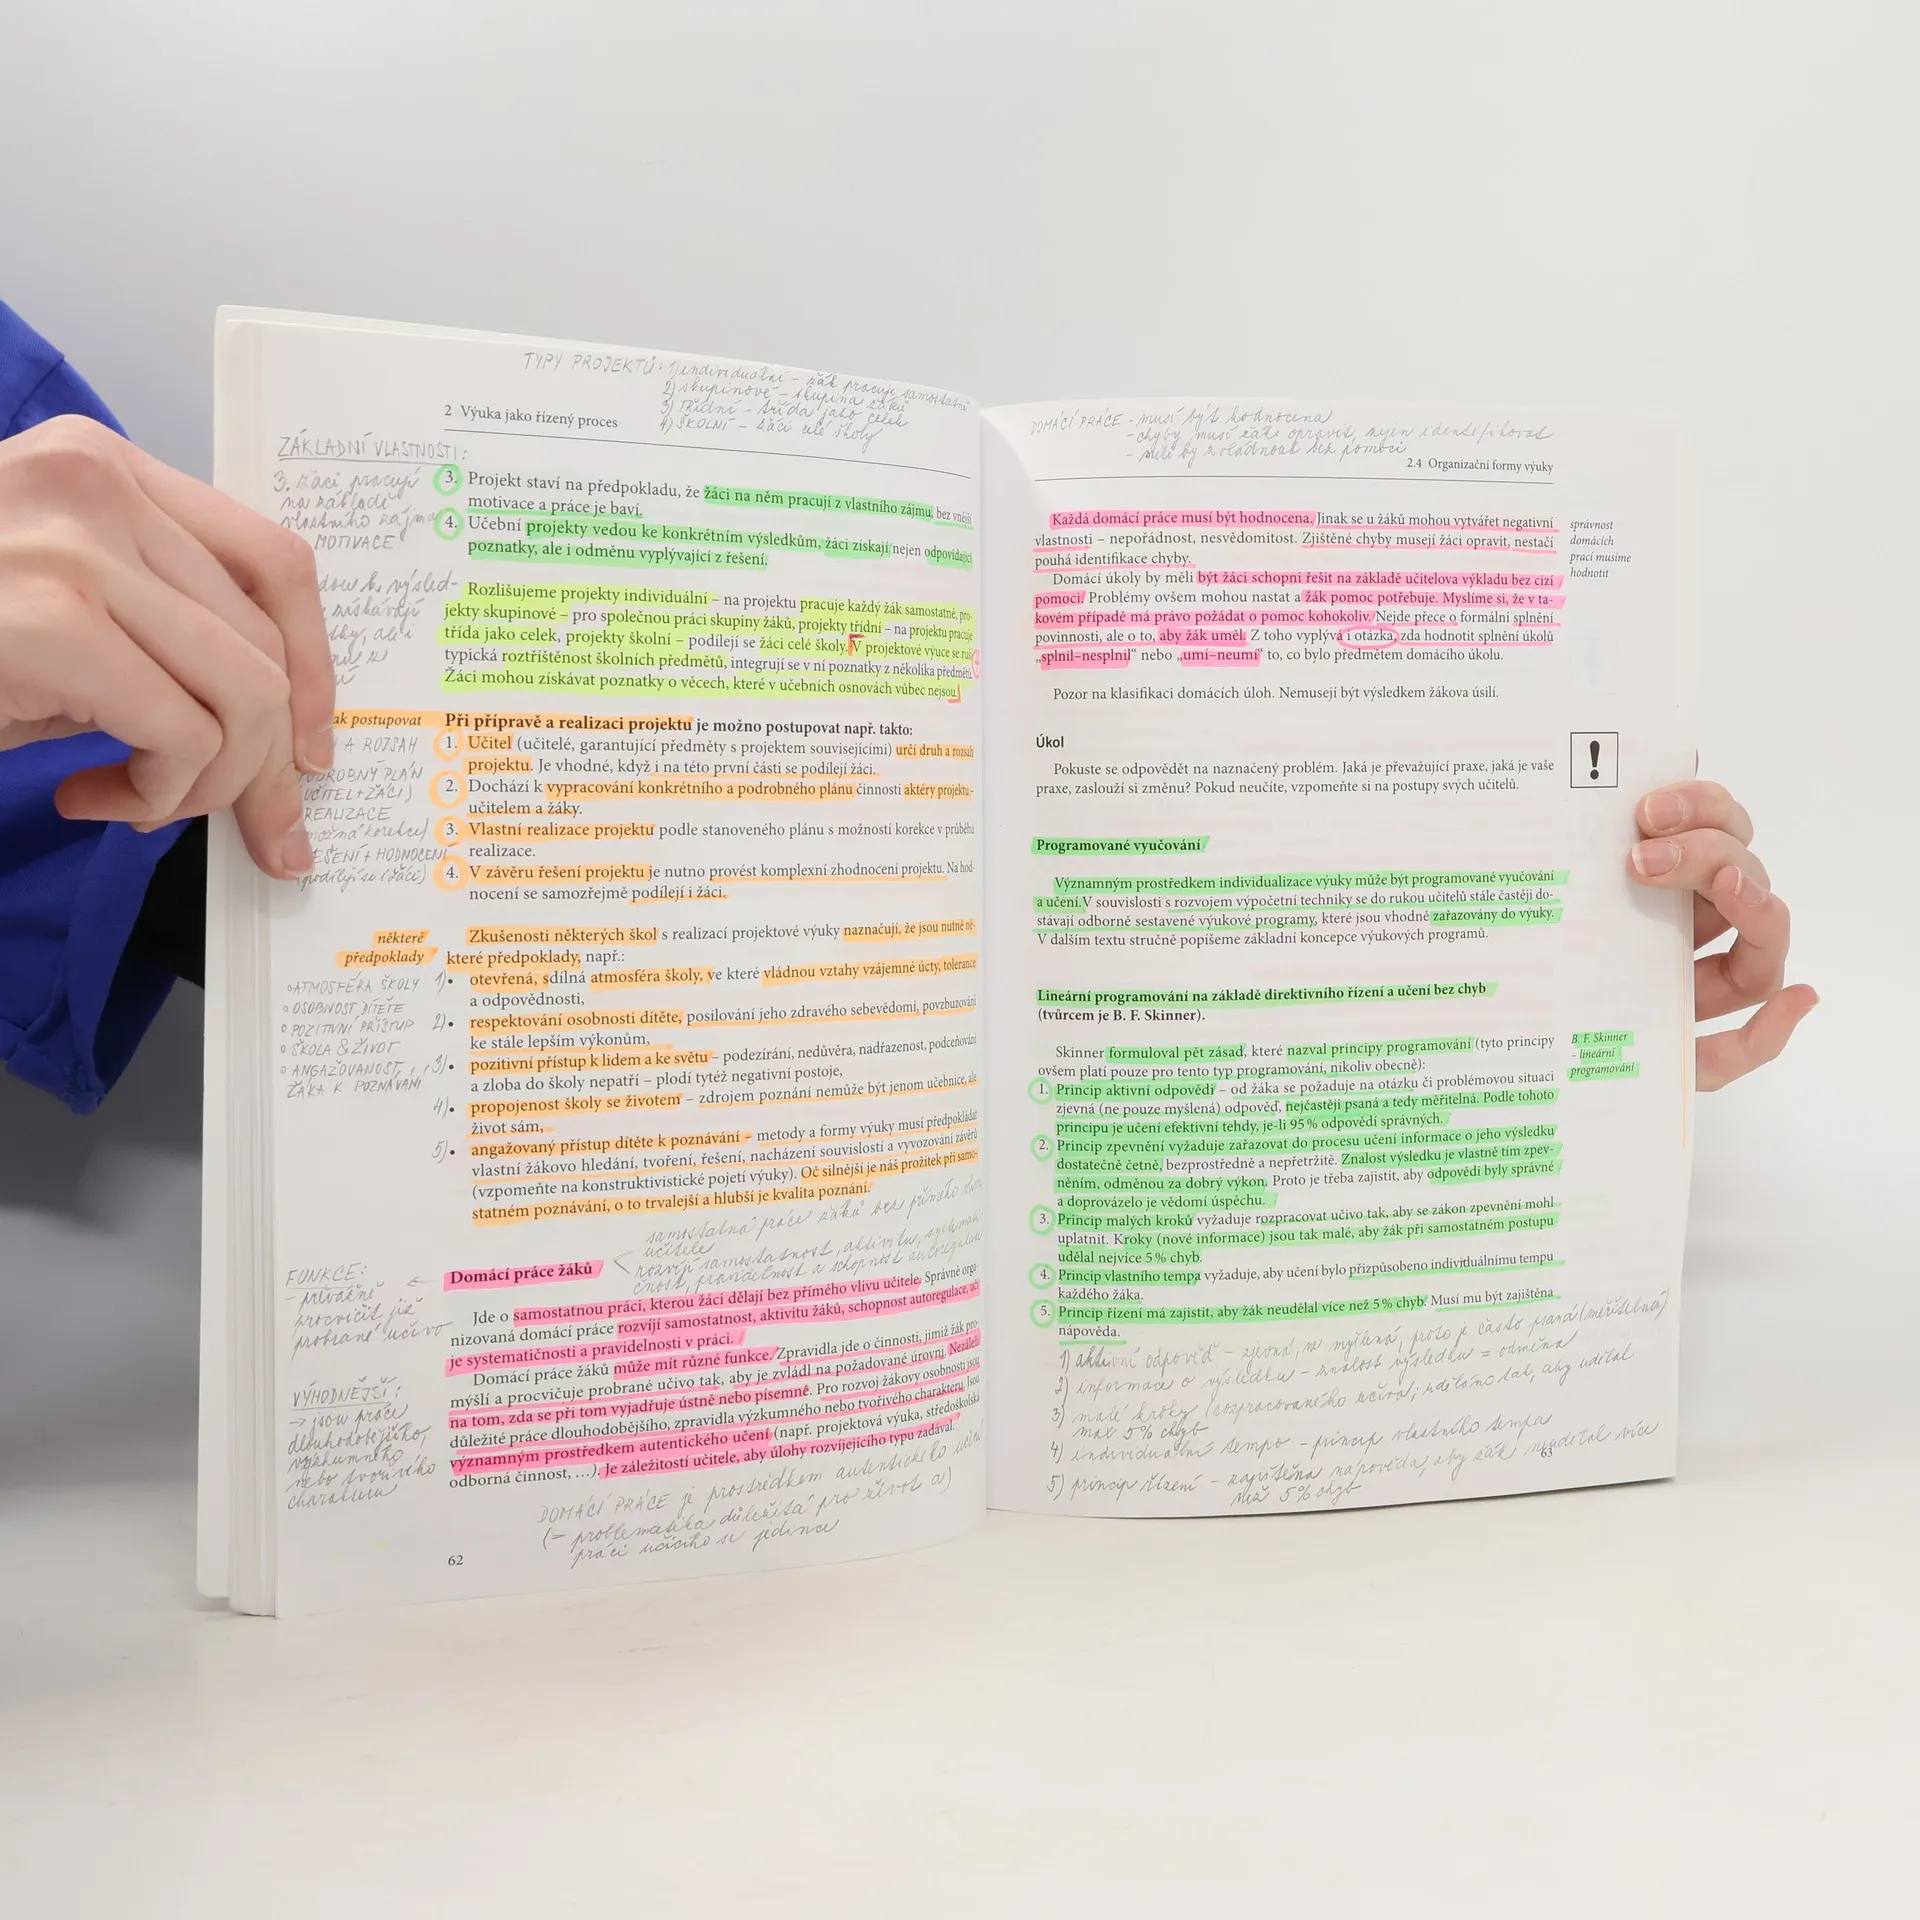 TYPY PROJEKTŮ: 1) individuální – žák pracuje samostatně
2) skupinové – skupina žáků
3) TŘÍDNÍ – třída jako celek
4) ŠKOLNÍ – žáci celé školy
2 Výuka jako řízený proces
ZÁKLADNÍ VLASTNOSTI:
3. žáci pracují
na základě
vlastního zájmu
MOTIVACE
3. Projekt staví na předpokladu, že žáci na něm pracují z vlastního zájmu, bez vnější
motivace a práce je baví.
4. Učební projekty vedou ke konkrétním výsledkům, žáci získají nejen odpovídající
poznatky, ale i odměnu vyplývající z řešení.
výsled-
získávají
ale i
Rozlišujeme projekty individuální – na projektu pracuje každý žák samostatně, pro-
jekty skupinové – pro společnou práci skupiny žáků, projekty třídní – na projektu pracuje
třída jako celek, projekty školní – podílejí se žáci celé školy. V projektové výuce se ruší
typická roztříštěnost školních předmětů, integrují se v ní poznatky z několika předmětů.
Žáci mohou získávat poznatky o věcech, které v učebních osnovách vůbec nejsou.
ak postupovat
Při přípravě a realizaci projektu je možno postupovat např. takto:
1. Učitel (učitelé, garantující předměty s projektem souvisejícími) určí druh a rozsah
projektu. Je vhodné, když i na této první části se podílejí žáci.
2. Dochází k vypracování konkrétního a podrobného plánu činnosti aktéry projektu –
učitelem a žáky.
3. Vlastní realizace projektu podle stanoveného plánu s možností korekce v průběhu
realizace.
4. V závěru řešení projektu je nutno provést komplexní zhodnocení projektu. Na hod-
nocení se samozřejmě podílejí i žáci.
A ROZSAH
PODROBNÝ PLÁN
(UČITEL+ŽÁCI)
REALIZACE
(možná korekce)
ŘEŠENÍ + HODNOCENÍ
(podílejí se i žáci)
některé
předpoklady
Zkušenosti některých škol s realizací projektové výuky naznačují, že jsou nutné ně-
které předpoklady, např.:
1) • otevřená, sdílná atmosféra školy, ve které vládnou vztahy vzájemné úcty, tolerance
a odpovědnosti,
2) • respektování osobnosti dítěte, posilování jeho zdravého sebevědomí, povzbuzování
ke stále lepším výkonům,
3) • pozitivní přístup k lidem a ke světu – podezírání, nedůvěra, nadřazenost, podceňování
a zloba do školy nepatří – plodí tytéž negativní postoje,
4) • propojenost školy se životem – zdrojem poznání nemůže být jenom učebnice, ale
život sám,
5) • angažovaný přístup dítěte k poznávání – metody a formy výuky musí předpokládat
vlastní žákovo hledání, tvoření, řešení, nacházení souvislostí a vyvozování závěrů
(vzpomeňte na konstruktivistické pojetí výuky). Oč silnější je náš prožitek při samo-
statném poznávání, o to trvalejší a hlubší je kvalita poznání.
◦ ATMOSFÉRA ŠKOLY
◦ OSOBNOST DÍTĚTE
◦ POZITIVNÍ PŘÍSTUP
◦ ŠKOLA & ŽIVOT
◦ ANGAŽOVANOST
ŽÁKA K POZNÁVÁNÍ
samostatná práce žáků bez přímého
učitele
rozvíjí samostatnost, aktivitu, systemati-
čnost, pravidelnost a schopnost autoregulace
Domácí práce žáků
FUNKCE:
– převážně
procvičit již
probrané učivo
Jde o samostatnou práci, kterou žáci dělají bez přímého vlivu učitele. Správně orga-
nizovaná domácí práce rozvíjí samostatnost, aktivitu žáků, schopnost autoregulace, učí
je systematičnosti a pravidelnosti v práci.
Domácí práce žáků může mít různé funkce. Zpravidla jde o činnosti, jimiž žák pro-
mýšlí a procvičuje probrané učivo tak, aby je zvládl na požadované úrovni. Nezáleží
na tom, zda se při tom vyjadřuje ústně nebo písemně. Pro rozvoj žákovy osobnosti jsou
důležité práce dlouhodobějšího, zpravidla výzkumného nebo tvořivého charakteru. Jsou
významným prostředkem autentického učení (např. projektová výuka, středoškolská
odborná činnost, …). Je záležitostí učitele, aby úlohy rozvíjejícího typu zadával.
VÝHODNĚJŠÍ:
→ jsou práce
dlouhodobějšího,
výzkumného
nebo tvořivého
charakteru
DOMÁCÍ PRÁCE je prostředkem autentického učení
(= problematika důležitá pro život a)
práci učícího se jedince
62
DOMÁCÍ PRÁCE – musí být hodnocena
– chyby musí žáci opravit, nejen identifikovat
– měli by zvládnout bez pomoci
2.4 Organizační formy výuky
Každá domácí práce musí být hodnocena. Jinak se u žáků mohou vytvářet negativní
vlastnosti – nepořádnost, nesvědomitost. Zjištěné chyby musejí žáci opravit, nestačí
pouhá identifikace chyby.
správnost
domácích
prací musíme
hodnotit
Domácí úkoly by měli být žáci schopni řešit na základě učitelova výkladu bez cizí
pomoci. Problémy ovšem mohou nastat a žák pomoc potřebuje. Myslíme si, že v ta-
kovém případě má právo požádat o pomoc kohokoliv. Nejde přece o formální splnění
povinnosti, ale o to, aby žák uměl. Z toho vyplývá i otázka, zda hodnotit splnění úkolů
„splnil–nesplnil“ nebo „umí–neumí“ to, co bylo předmětem domácího úkolu.
Pozor na klasifikaci domácích úloh. Nemusejí být výsledkem žákova úsilí.
Úkol
Pokuste se odpovědět na naznačený problém. Jaká je převažující praxe, jaká je vaše
praxe, zaslouží si změnu? Pokud neučíte, vzpomeňte si na postupy svých učitelů.
!
Programované vyučování
Významným prostředkem individualizace výuky může být programované vyučování
a učení. V souvislosti s rozvojem výpočetní techniky se do rukou učitelů stále častěji do-
stávají odborně sestavené výukové programy, které jsou vhodně zařazovány do výuky.
V dalším textu stručně popíšeme základní koncepce výukových programů.
Lineární programování na základě direktivního řízení a učení bez chyb
(tvůrcem je B. F. Skinner).
B. F. Skinner
– lineární
programování
Skinner formuloval pět zásad, které nazval principy programování (tyto principy
ovšem platí pouze pro tento typ programování, nikoliv obecně):
1. Princip aktivní odpovědi – od žáka se požaduje na otázku či problémovou situaci
zjevná (ne pouze myšlená) odpověď, nejčastěji psaná a tedy měřitelná. Podle tohoto
principu je učení efektivní tehdy, je-li 95 % odpovědí správných.
2. Princip zpevnění vyžaduje zařazovat do procesu učení informace o jeho výsledku
dostatečně četně, bezprostředně a nepřetržitě. Znalost výsledku je vlastně tím zpev-
něním, odměnou za dobrý výkon. Proto je třeba zajistit, aby odpovědi byly správné
a doprovázelo je vědomí úspěchu.
3. Princip malých kroků vyžaduje rozpracovat učivo tak, aby se zákon zpevnění mohl
uplatnit. Kroky (nové informace) jsou tak malé, aby žák při samostatném postupu
udělal nejvíce 5 % chyb.
4. Princip vlastního tempa vyžaduje, aby učení bylo přizpůsobeno individuálnímu tempu
každého žáka.
5. Princip řízení má zajistit, aby žák neudělal více než 5 % chyb. Musí mu být zajištěna
nápověda.
1) aktivní odpověď – zjevná, ne myšlená, proto je často psaná (měřitelná)
2) informace o výsledku – znalost výsledku = odměna
3) malé kroky (rozpracovaného učiva; uděláno tak, aby udělal
max 5% chyb
4) individuální tempo – princip vlastního tempa
5) princip řízení – zajištěna nápověda, aby žák neudělal více
než 5% chyb
63